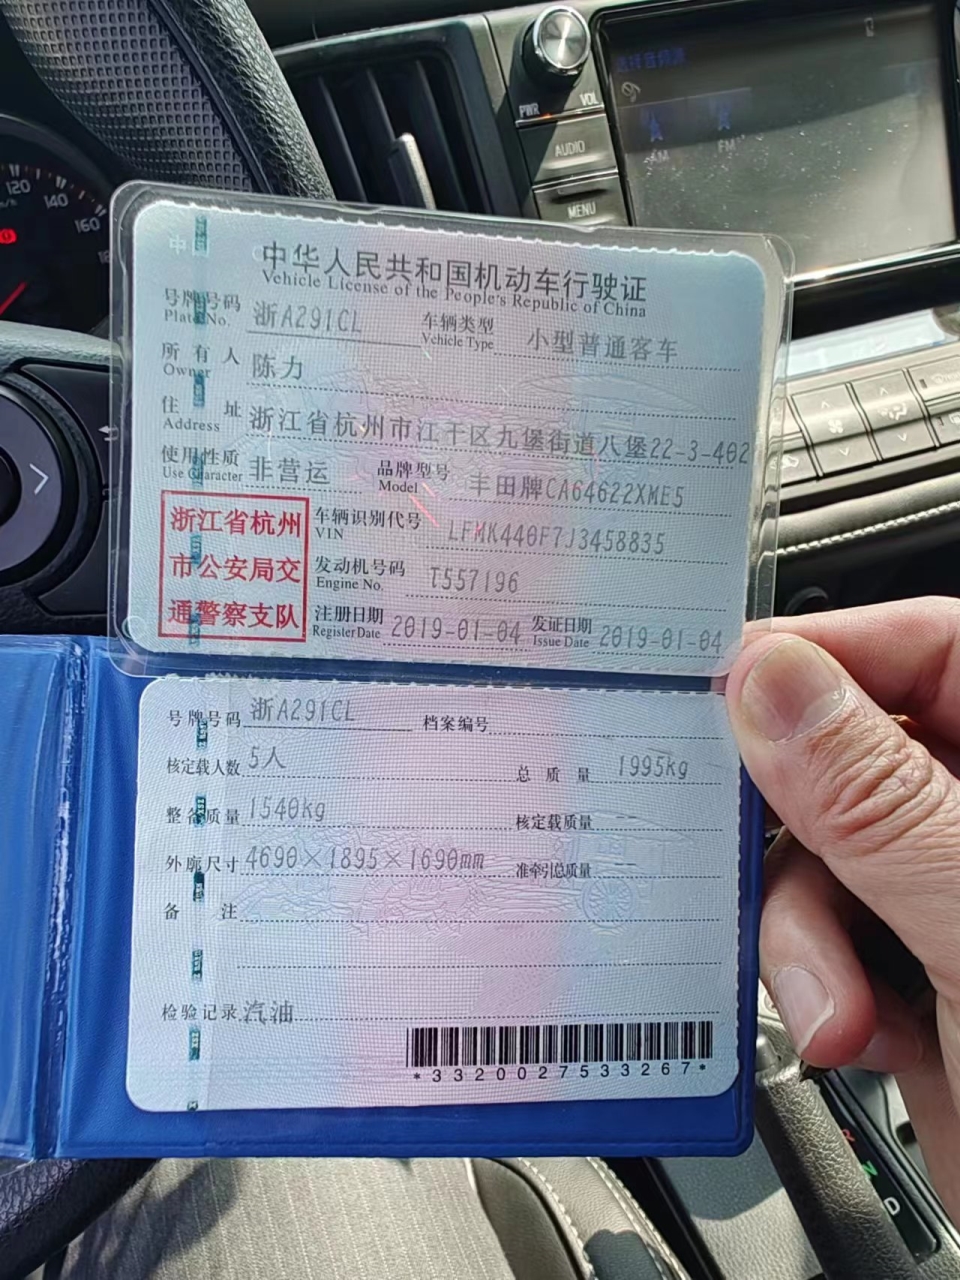 120
140
160
PWR
VOL
AUDIO
MENU
选择音频源
AM
FM
中华人民共和国机动车行驶证
Vehicle License of the People's Republic of China
号牌号码 浙A291CL 车辆类型 小型普通客车
Plate No. Vehicle Type
所有人 陈力
Owner
住址 浙江省杭州市江干区九堡街道八堡22-3-402
Address
使用性质 非营运 品牌型号 丰田牌CA64622XME5
Use Character Model
浙江省杭州
市公安局交
通警察支队
车辆识别代号 LFMK440F7J3458835
VIN
发动机号码 T557196
Engine No.
注册日期 2019-01-04 发证日期 2019-01-04
Register Date Issue Date
号牌号码 浙A291CL 档案编号
核定载人数 5人 总质量 1995kg
整备质量 1540kg 核定载质量 --
外廓尺寸 4690×1895×1690mm 准牵引总质量 --
备注
检验记录 汽油
*3320027533267*
R
N
D